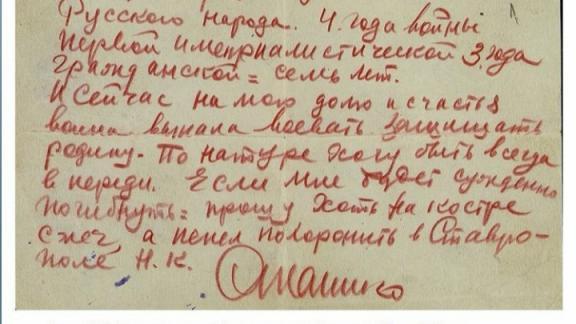 Русского народа. 4 года войны
первой империалистической 3 года
гражданской = семь лет.
И сейчас на мою долю и счастья
воевать защищать
родину. По натуре хочу быть всегда
в переди. Если мне будет суждено
погибнуть = прошу хоть на костре
сжеч, а пепел похоронить в Ставро-
поле Н. К.